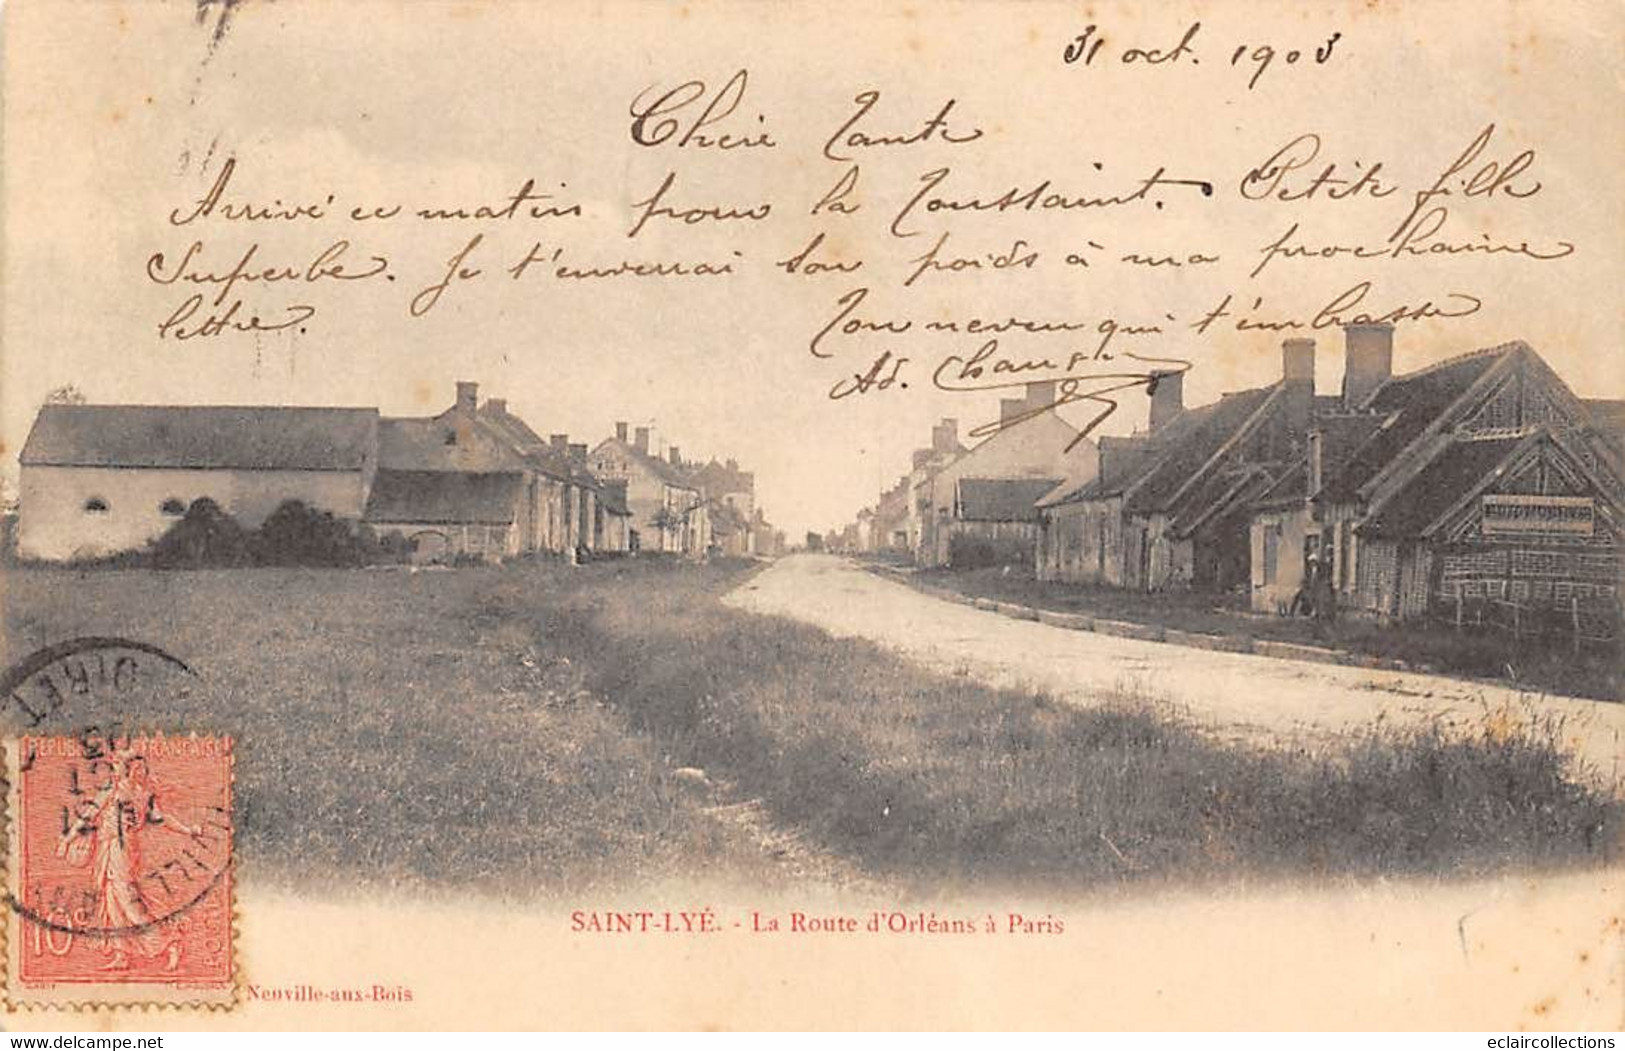 31 oct. 1903
Chère Tante
Arrivé ce matin pour la Toussaint. Petite fille
Superbe. Je t'enverrai son poids à ma prochaine
lettre. Ton neveu qui t'embrasse
Ad.
RÉPUBLIQUE FRANÇAISE
10c
POSTES
31
OCT
03
LOIRET
SAINT-LYÉ. - La Route d'Orléans à Paris
Neuville-aux-Bois
delcampe.net
eclaircollections